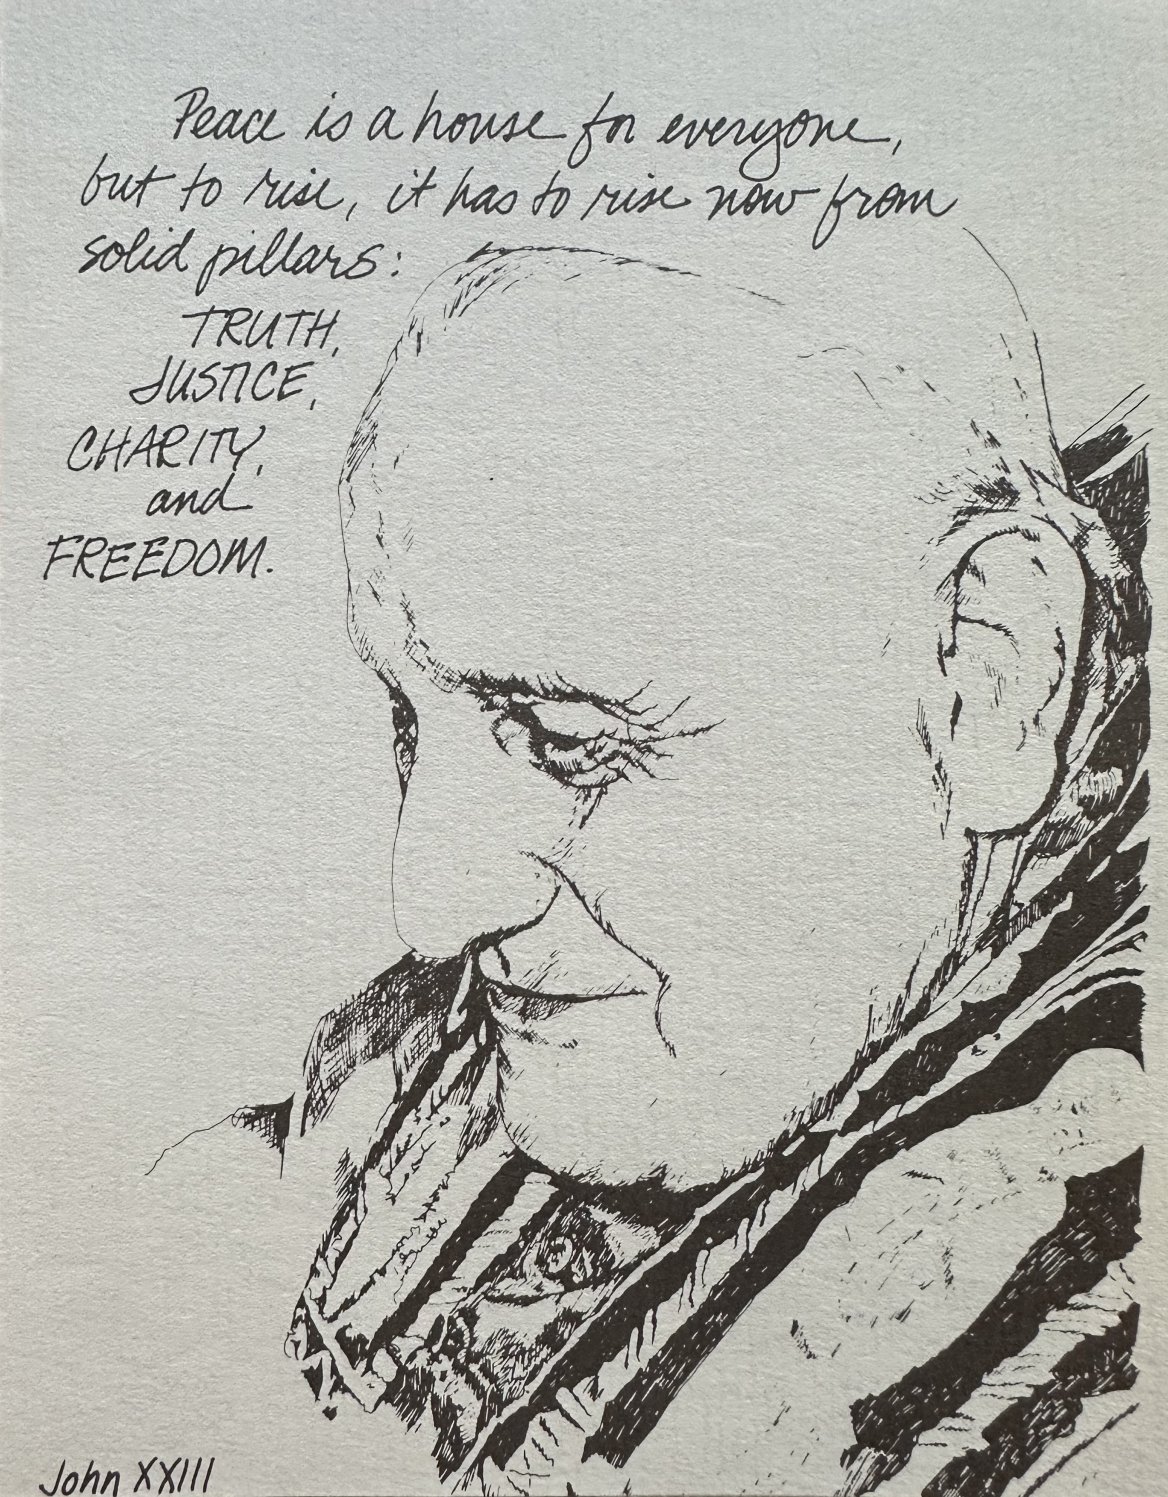 Peace is a house for everyone,
but to rise, it has to rise now from
solid pillars:
TRUTH,
JUSTICE,
CHARITY,
and
FREEDOM.
John XXIII